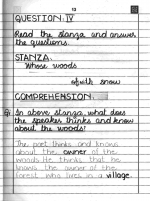 13
QUESTION: IV
Read the stanza and answer
the questions.
STANZA:
Whose woods
with snow
COMPREHENSION:
Q1. In above stanza what does
the speaker thinks and know
about the woods?
The poet thinks and knows
about the owner of the
woods He thinks that he
knows the owner of the
forest who lives in a village.